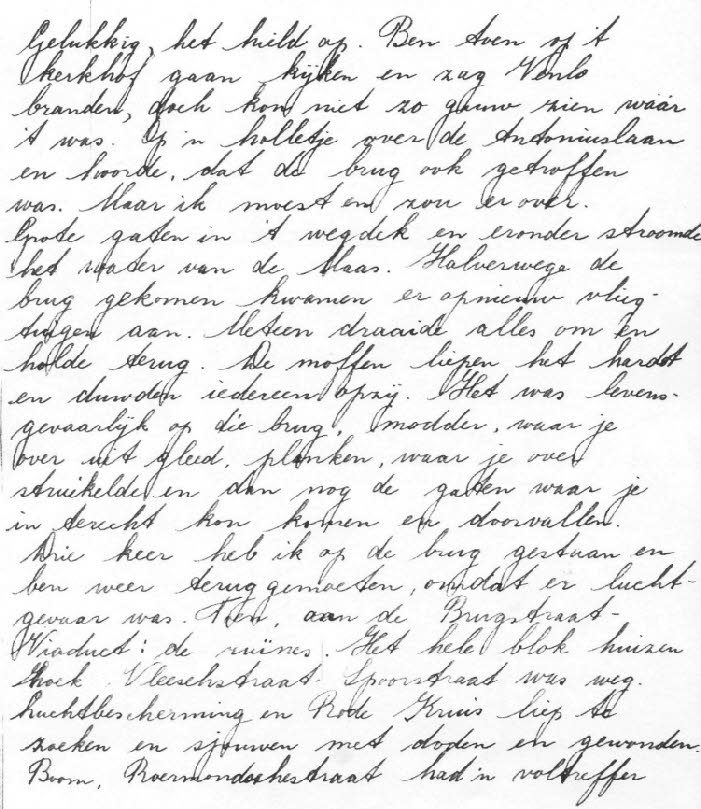 Gelukkig, het hield op. Ben toen op 't
kerkhof gaan kijken en zag Venlo
branden, doch kon niet zo gauw zien waar
't was. Op 'n holletje over de Antoniuslaan
en hoorde, dat de brug ook getroffen
was. Maar ik moest en zou er over.
Grote gaten in 't wegdek en eronder stroomde
het water van de Maas. Halverwege de
brug gekomen kwamen er opnieuw vlieg-
tuigen aan. Meteen draaide alles om en
holde terug. De moffen liepen het hardst
en duwden iedereen opzij. Het was levens-
gevaarlijk op die brug, modder, waar je
over uit gleed, planken, waar je over
struikelde en dan nog de gaten waar je
in terecht kon komen en doorvallen.
Drie keer heb ik op de brug gestaan en
ben weer terug gemoeten, omdat er lucht-
gevaar was. Toen, aan de Brugstraat-
Viaduct: de ruïnes. Het hele blok huizen
hoek Vleeschstraat Spoorstraat was weg.
Luchtbescherming en Rode Kruis liep te
zoeken en sjouwen met doden en gewonden.
Boom, Roermondschestraat had 'n voltreffer